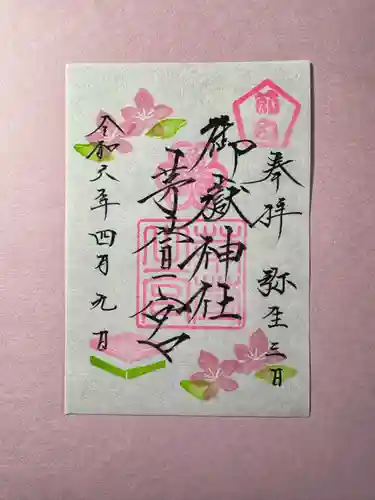 奉拝
弥生三日
御嶽神社
茅萱宮
令和六年四月九日